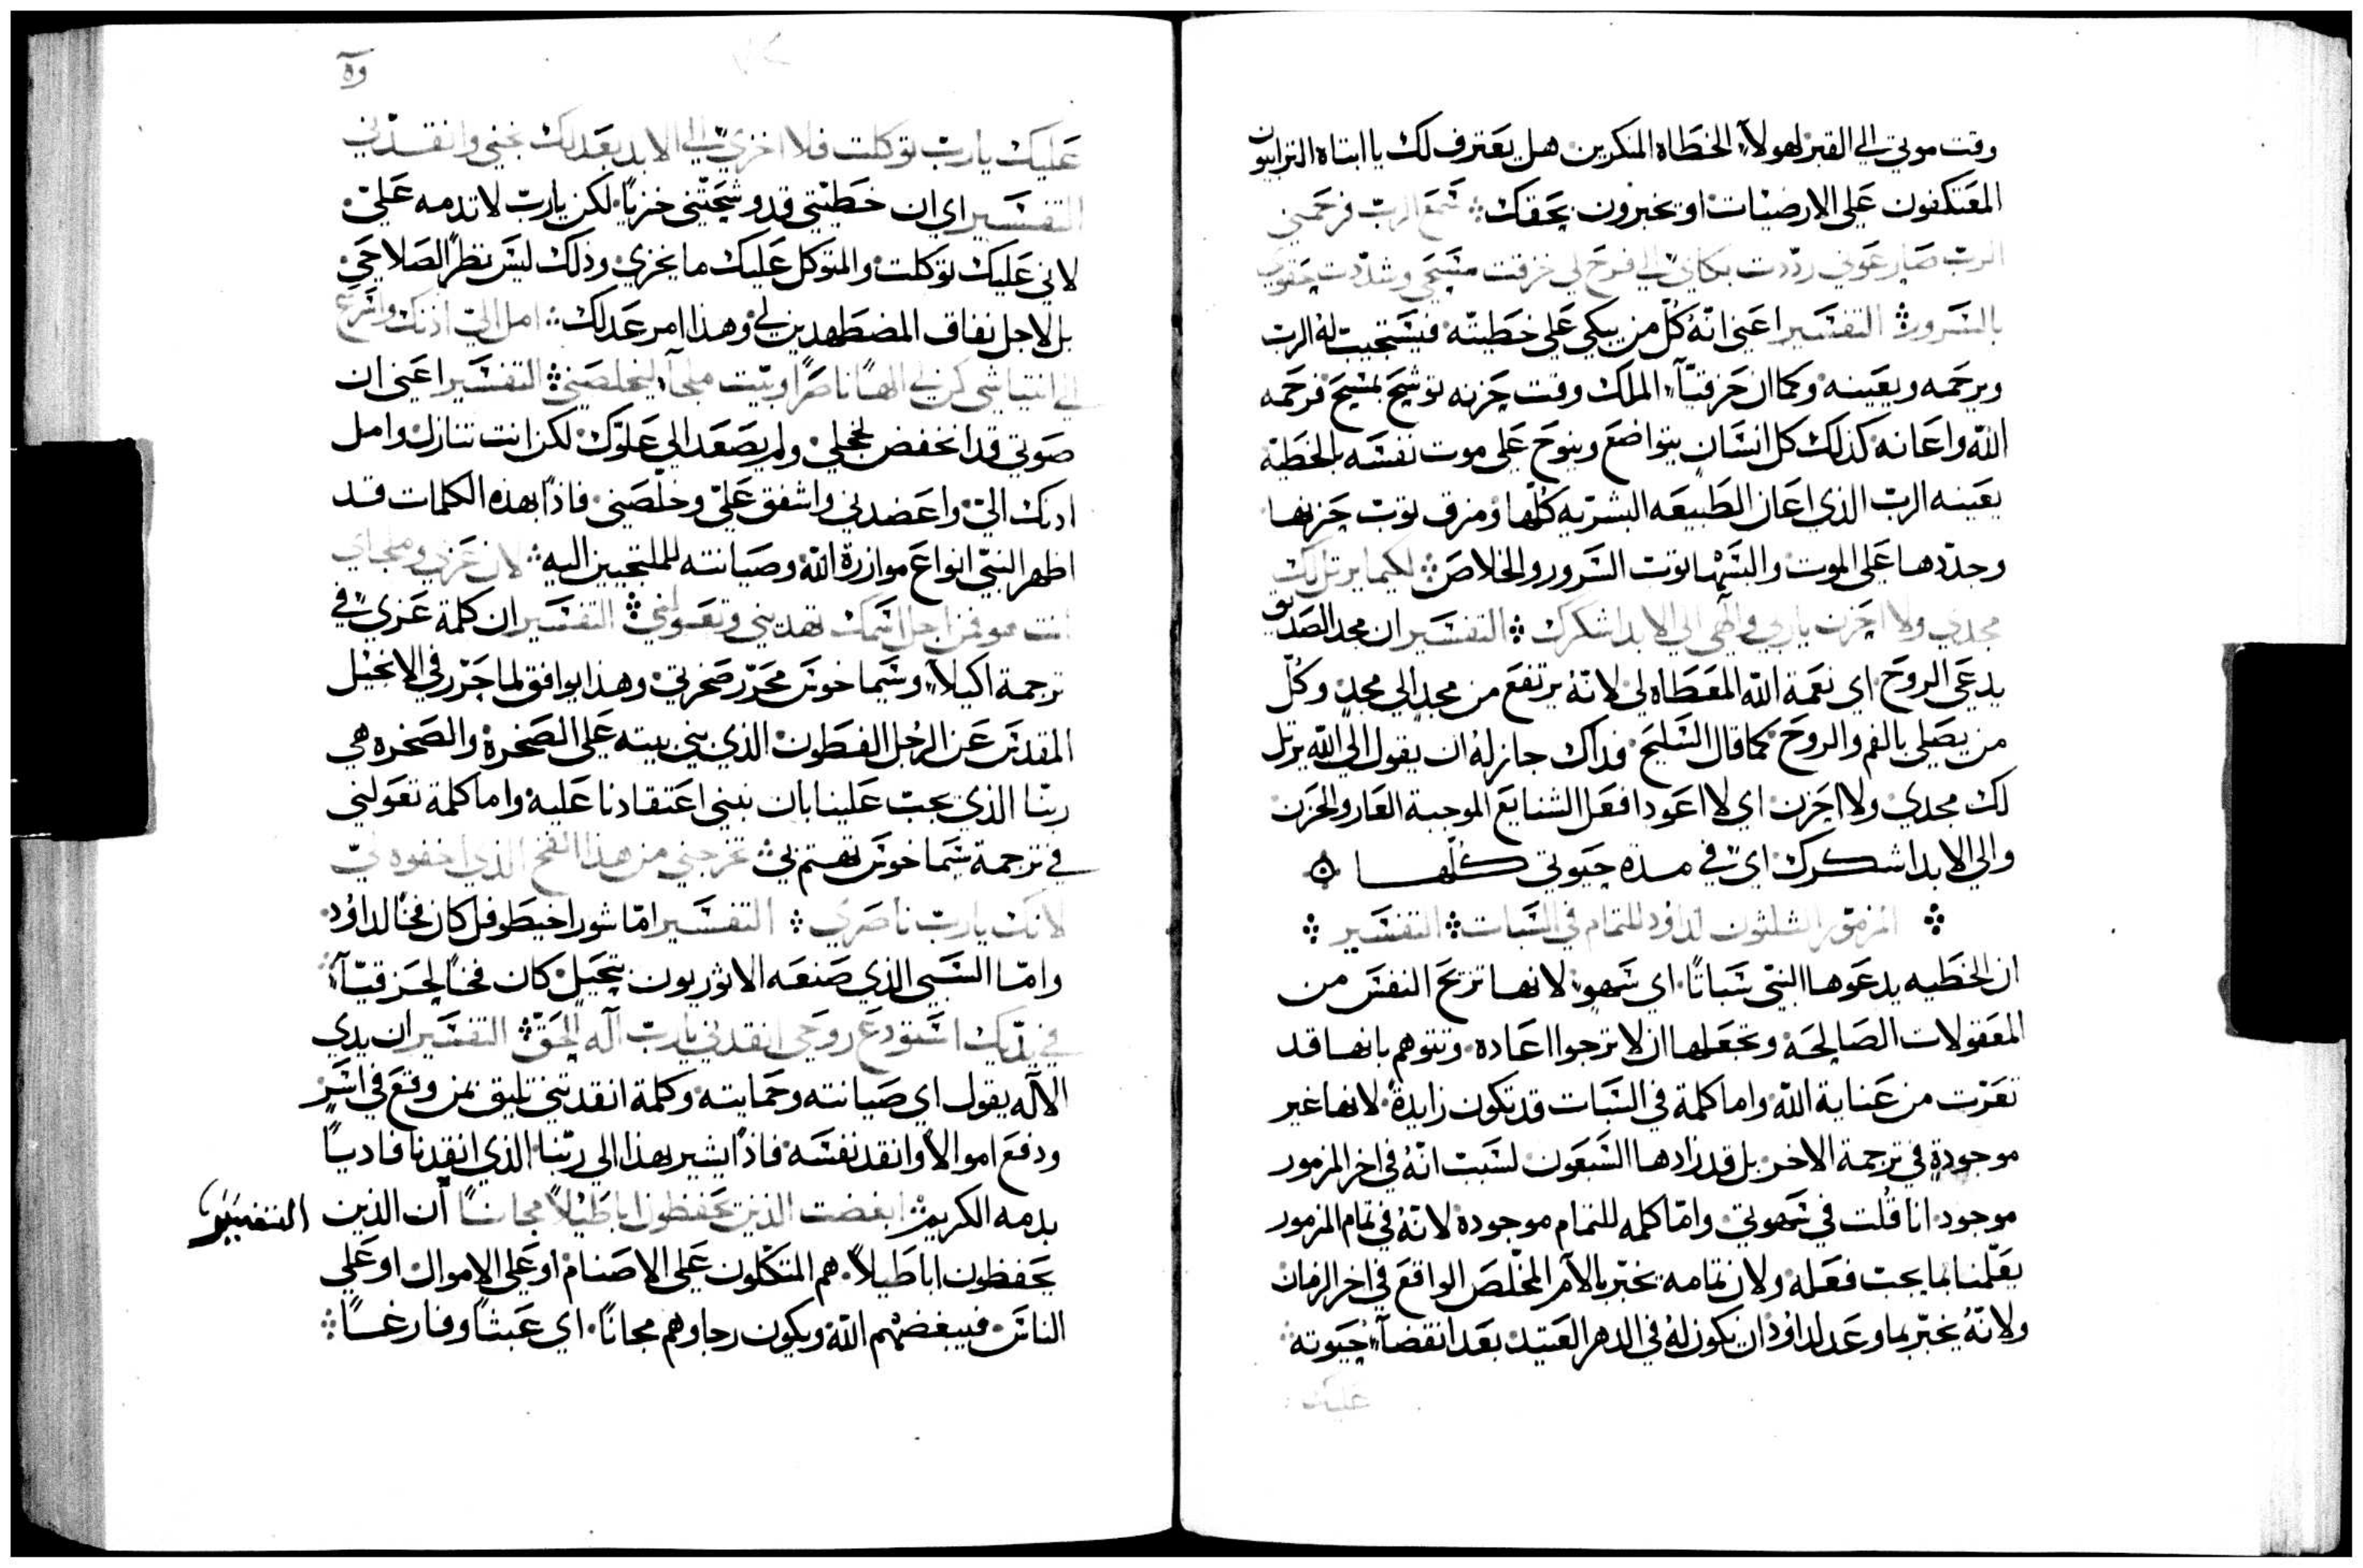 وقت موتي الي القبر لهولآء الخطاه المنكرين هل يعترف لك يا ابتاه الترابيون
المعتكفون علي الارضيات او يخبرون بحقك ܀ سمع الرب فرحمني
الرب صار عوني رددت بكائي الي فرح لي مزقت مسحي وشددت حقوي
بالسرور ܀ التفسير اعني انّهُ كلّ من يبكي علي خطيته فيستجيب لهُ الرب
ويرحمه ويعينه وكما ان حزقيّآء الملك وقت حزنه توشح بمسح فرحمه
اللّه واعانه كذلك كل انسان يتواضع وينوح علي موت نفسه بالخطية
يعينه الرب الذي اعان الطبيعه البشريه كلّها ومزق توب حزنها
وجددها علي الموت والبسها توب السرور والخلاص ܀ لكيما يرتل لك
مجدي ولا احزن ياربي والهي الي الابد اشكرك ܀ التفسير ان مجد الصديق
يدعي الروح اي نعمة اللّه المعطاه لي لانّهُ يرتفع من مجد الي مجد وكلّ
من يصلي بالفم والروح كما قال السليح فذاك جاز لهُ ان يقول الي اللّه يرتل
لك مجدي ولا احزن اي لا اعود افعل الشنايع الموجبة العار والحزن
والي الابد اشكرك اي في مدة حيوتي كلّها
܀ المزمور الثلثون لداود للتمام في السبات ܀ التفسير ܀
ان الخطيه يدعوها النبي سباتًا اي سهو لانها تزيح النفس من
المعقولات الصالحة وتجعلها ان لا ترجوا اعاده وتتوهم بانها قد
تعرّت من عناية اللّه واما كلمة في السبات قد تكون زايدة لانها غير
موجودة في ترجمة الاخر بل قد زادها السبعون لسبب انّهُ في اخر المزمور
موجود انا قلت في سهوتي وامّا كلمه للتمام موجودة لانّهُ في تمام المزمور
يعلّمنا بما يجب فعله ولان تمامه يخبر بالامر المخلّص الواقع في اخر الزمان
ولانّهُ يخبّر بما وعد لداوُد ان يكون لهُ في الدهر العتيد بعد انقضآء حيوته
عليك
وه
عليك يارب توكلت فلا اخزي الي الابد بعدلك نجني وانقذني
التفسير اي ان خطيتي قد وشحتني خزيًا لكن يارب لا تدمه عليّ
لاني عليك توكلت والمتوكل عليك ما يخزي وذلك ليس نظرًا لصلاحي
بل لاجل نفاق المضطهدين لي وهذا امر عدلك ܀ امل اليّ اذنك واسرع
الي انتياشي كن لي الهًا ناصرًا وبيت ملجآء ليخلصني ܀ التفسير اعني ان
صوتي قد انخفض لخجلي ولم يصعد الي علوّك لكن انت تنازل وامل
ادنك اليّ واعضدني واشفق عليّ وخلّصني فاذًا بهذه الكلمات قد
اظهر النبيّ انواع موازرة اللّه وصيانته للملتجيين اليه ܀ لان عزي وملجاي
انت هو فمن اجل اسمك تهديني وتعولني ܀ التفسير ان كلمة عزي في
ترجمة اكيلا وسيماخوس محرّر صخرتي وهذا يوافق لما حرّر في الانجيل
المقدس عن الرجل الفطون الذي بني بيته علي الصخرة والصخره هي
ربّنا الذي يجب علينا بان نبني اعتقادنا عليه واما كلمة تعولني
في ترجمة سيماخوس تهتم بي ܀ تخرجني من هذا الفخ الذي اخفوه لي
لانك يارب ناصري ܀ التفسير امّا شور اخيطوفل كان فخًا لداوُد
وامّا السبي الذي صنعه الاثوريون بتحيل كان فخًا لحزقيّآء
في يديك استودع روحي انقذني يارب اله الحق ܀ التفسير ان يدي
الاله يقول اي صيانته وحمايته وكلمة انقدتني تليق بمن وقع في اسر
ودفع اموالًا وانقد نفسه فاذًا يشير بهذا الي ربّنا الذي انقدنا فاديًا
بدمه الكريم ܀ ابغضت الذين يحفظون اباطيلًا مجانًا ان الذين التفسير
يحفظون اباطيلًا هم المتكلون علي الاصنام او علي الاموال او علي
الناس فيبغضهم اللّه ويكون رجاوهم مجانًا اي عبثًا وفارغًا ܀